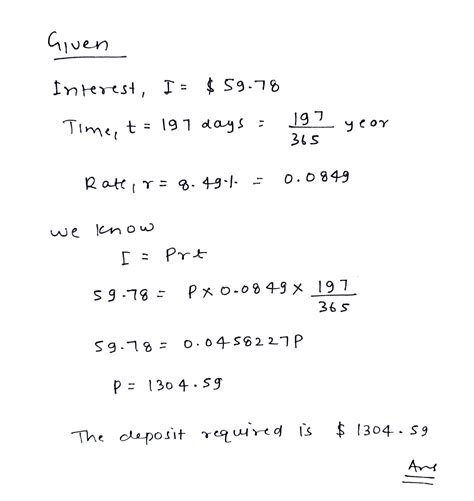 Given
Interest, I = $ 59.78
Time, t = 197 days = 197/365 year
Rate, r = 8.49% = 0.0849
we know
I = Prt
59.78 = P × 0.0849 × 197/365
59.78 = 0.0458227P
P = 1304.59
The deposit required is $ 1304.59
Ans